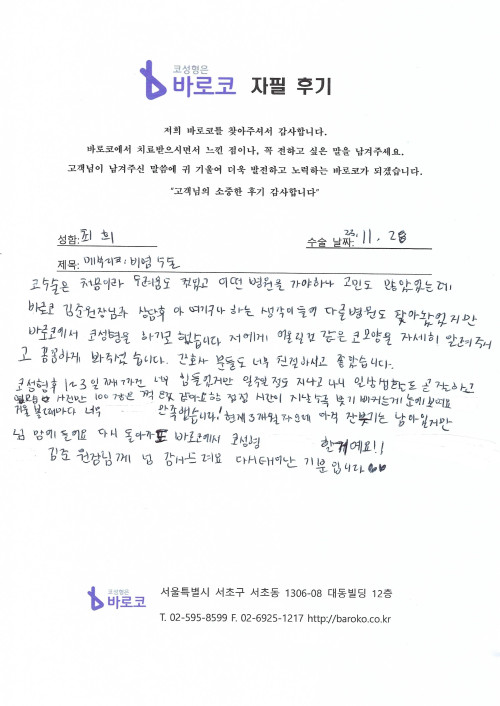 코성형은
바로코 자필 후기
저희 바로코를 찾아주셔서 감사합니다.
바로코에서 치료받으시면서 느낀 점이나, 꼭 전하고 싶은 말을 남겨주세요.
고객님이 남겨주신 말씀에 귀 기울여 더욱 발전하고 노력하는 바로코가 되겠습니다.
"고객님의 소중한 후기 감사합니다"
성함: 최 희 수술 날짜: 23. 11. 28
제목: 매부리코, 비염 수술
코수술은 처음이라 두려움도 컸었고 어떤 병원을 가야하나 고민도 많았었는데
바로코 김준원장님과 상담후 아 여기구나 하는 생각이들어 다른병원도 찾아놨었지만
바로코에서 코성형을 하기로 했습니다 저에게 어울릴것 같은 코모양을 자세히 알려주시
고 꼼꼼하게 봐주셨습니다. 간호사 분들도 너무 친절하시고 좋았습니다.
코성형후 1~3일 째가진 너무 힘들었지만 일주일정도 지나고 나니 일상생활도 곧 가능하고
사진만 100장은 찍은 점점 시간이 지날수록 붓기 빠지는게 눈에보여요
거울볼때마다 너무 만족했습니다! 현재 3개월차 아직 잔붓기는 남아있지만
넘 맘에들어요 다시 돌아가도 바로코에서 코성형 할거예요!!
김준 원장님께 넘 감사드려요 다시태어난 기분입니다
코성형은
바로코
서울특별시 서초구 서초동 1306-08 대동빌딩 12층
T. 02-595-8599 F. 02-6925-1217 http://baroko.co.kr